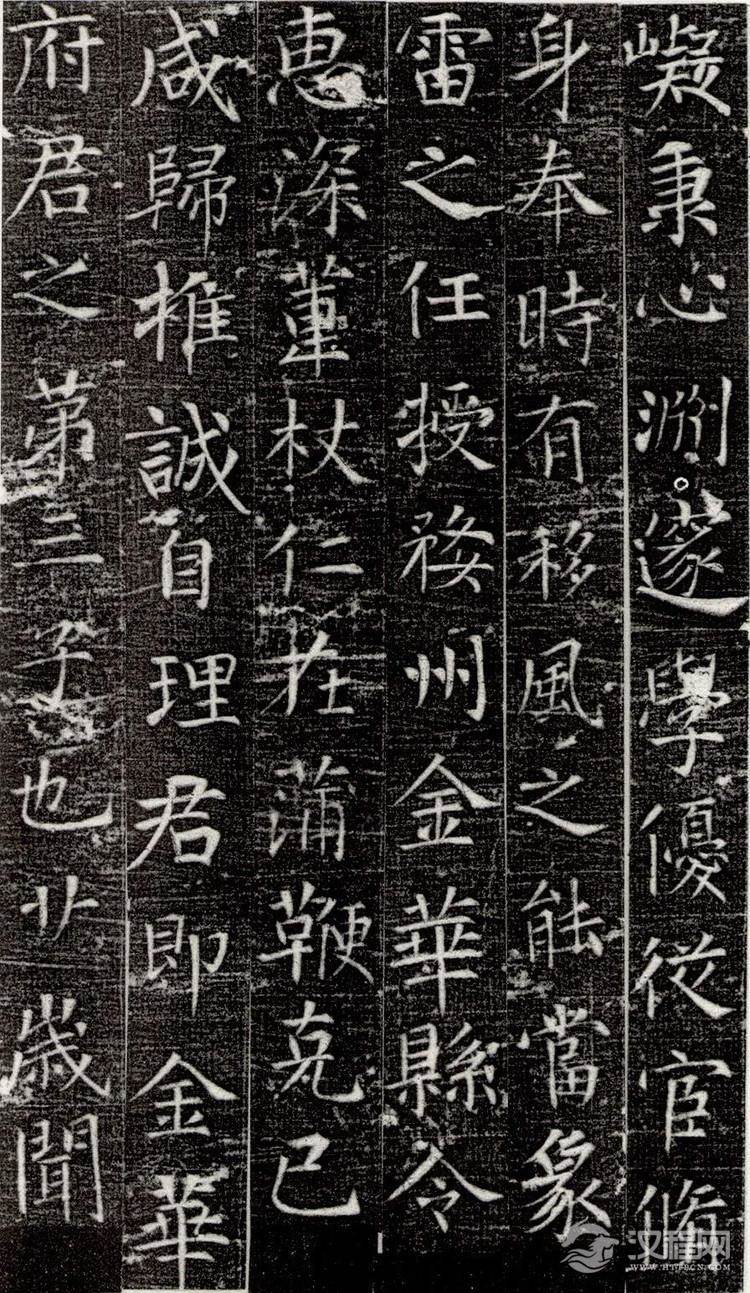 嶷秉心淵邃學優從宦脩
身奉時有移風之能當象
雷之任授婺州金華縣令
惠深董杖仁在蒲鞭克己
咸歸推誠自理君即金華
府君之第三子也廿歲聞
汉程网
WWW.HTTPCN.COM